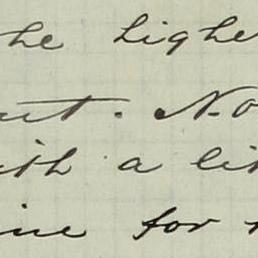 he highe
ut. No
ith a lit
ine for